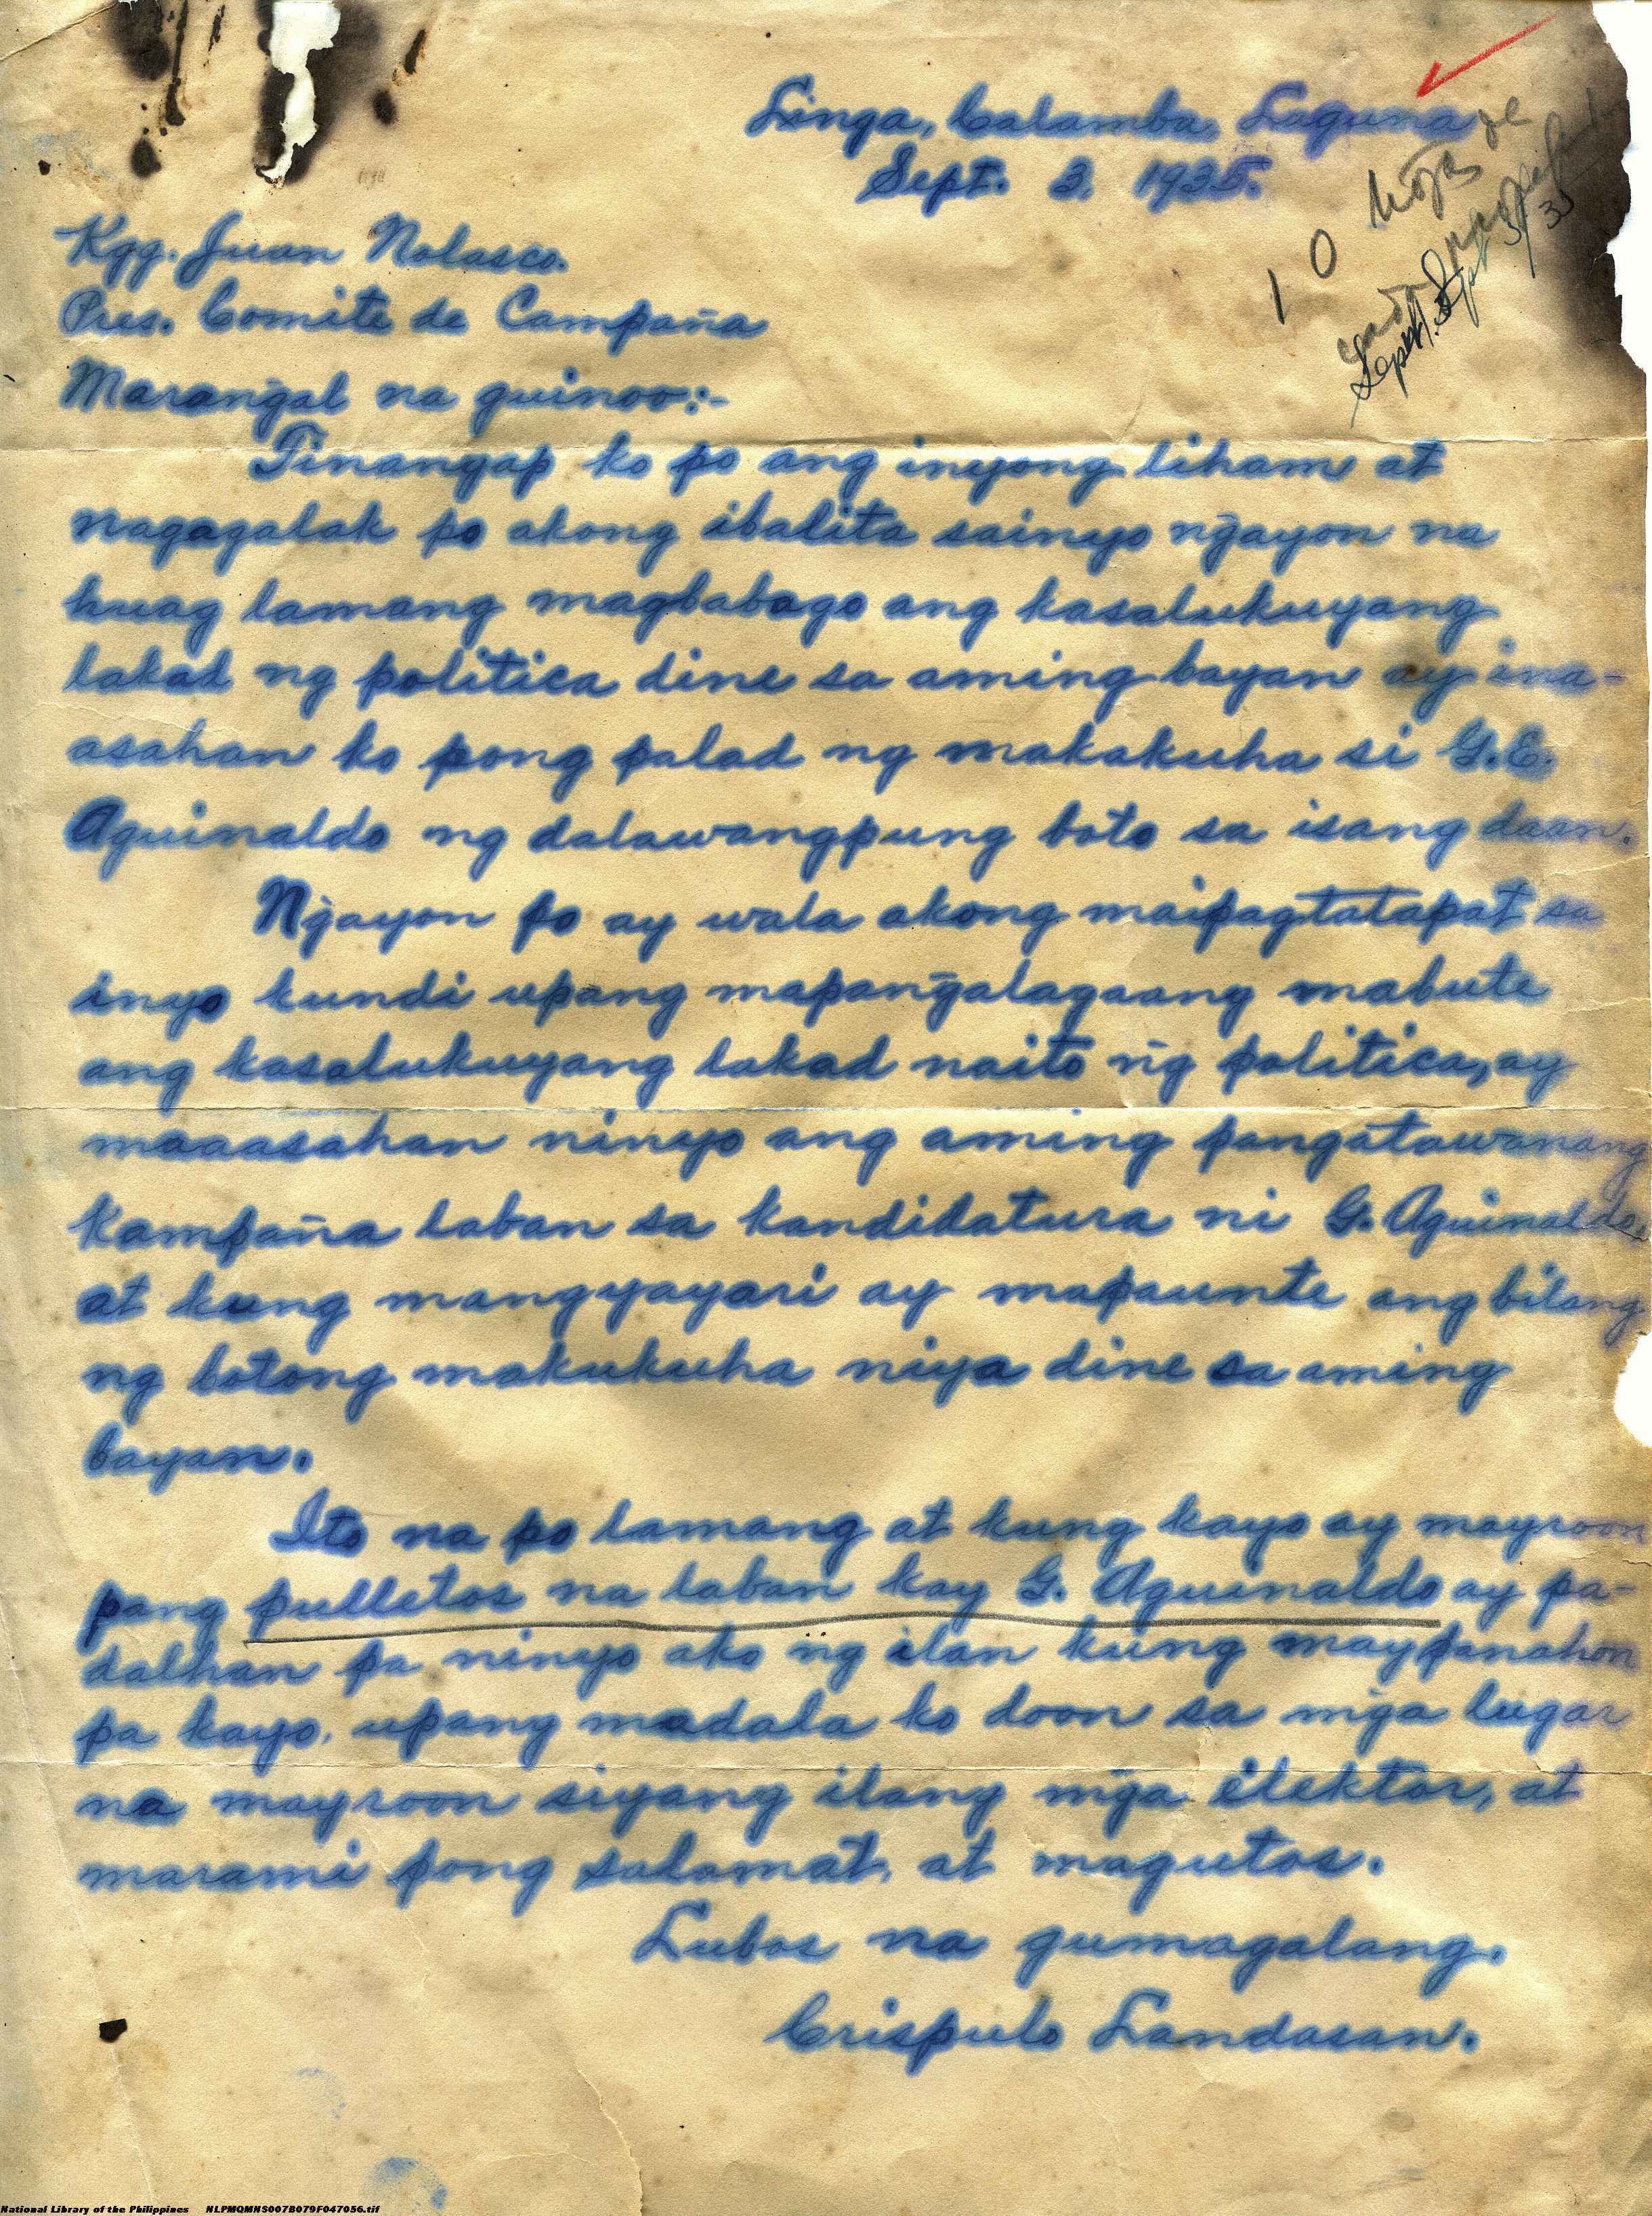 Linga, Calamba, Laguna
Sept. 2. 1935.
10 hojas de
Sept. 3/35
Kgg. Juan Nolasco.
Pres. Comite de Campaña
Marang̃al na guinoo:-
Tinangap ko po ang inyong liham at
nagagalak po akong ibalita sainyo ng̃ayon na
huag lamang magbabago ang kasalukuyang
lakad ng politica dine sa aming bayan ay ina-
asahan ko pong palad ng makakuha si G.E.
Aguinaldo ng dalawangpung boto sa isang daan.
Ng̃ayon po ay wala akong maipagtatapat sa
inyo kundi upang mapang̃alagaang mabute
ang kasalukuyang lakad naito ng̃ politica, ay
maaasahan ninyo ang aming pangatawanang
Kampaña laban sa kandidatura ni G. Aguinaldo
at kung mangyayari ay mapaunte ang bilang
ng botong makukuha niya dine sa aming
bayan.
Ito na po lamang at kung kayo ay mayroon
pang pulletos na laban kay G. Aguinaldo ay pa-
dalhan pa ninyo ako ng̃ ilan kung maypanahon
pa kayo, upang madala ko doon sa mg̃a lugar
na mayroon siyang ilang mg̃a elektor, at
marami pong salamat, at magutos.
Lubos na gumagalang.
Crispulo Landasan.
National Library of the Philippines NLPMQMNS007B079F047056.tif